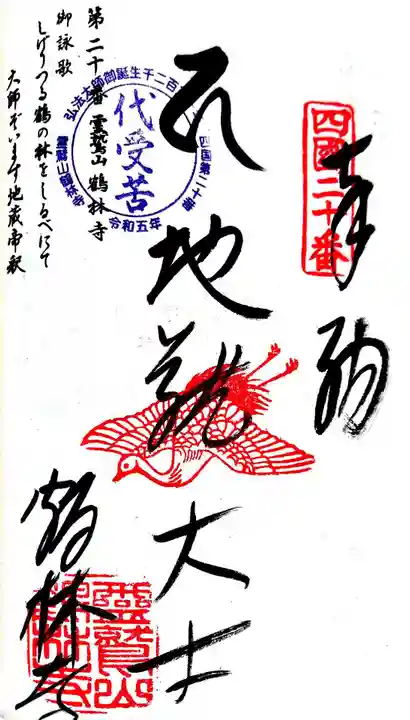 奉納
四國二十番
地蔵大士
鶴林寺
靈鷲山
鶴林寺
弘法大師御誕生千二百
四国第二十番
代受苦
令和五年
霊鷲山鶴林寺
第二十番 霊鷲山 鶴林寺
御詠歌
しげりつる鶴の林をしるべにて
大師ぞいます地蔵帝釈